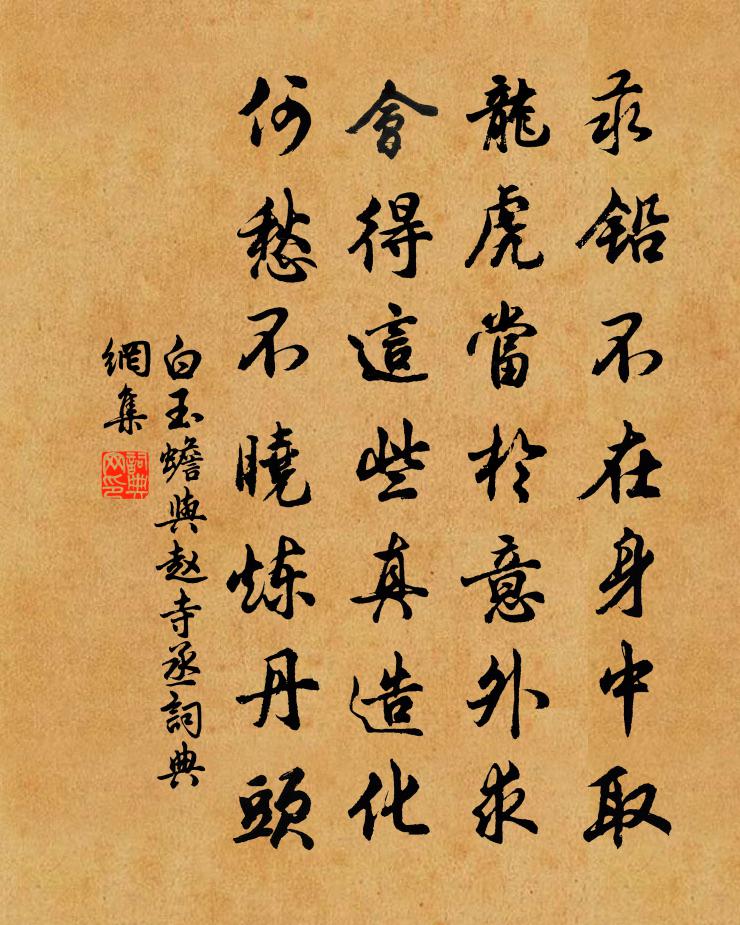 汞鉛不在身中取
龍虎當於意外求
會得這些真造化
何愁不曉炼丹頭
白玉蟾與赵寺丞詞典
網集
詞典
网印